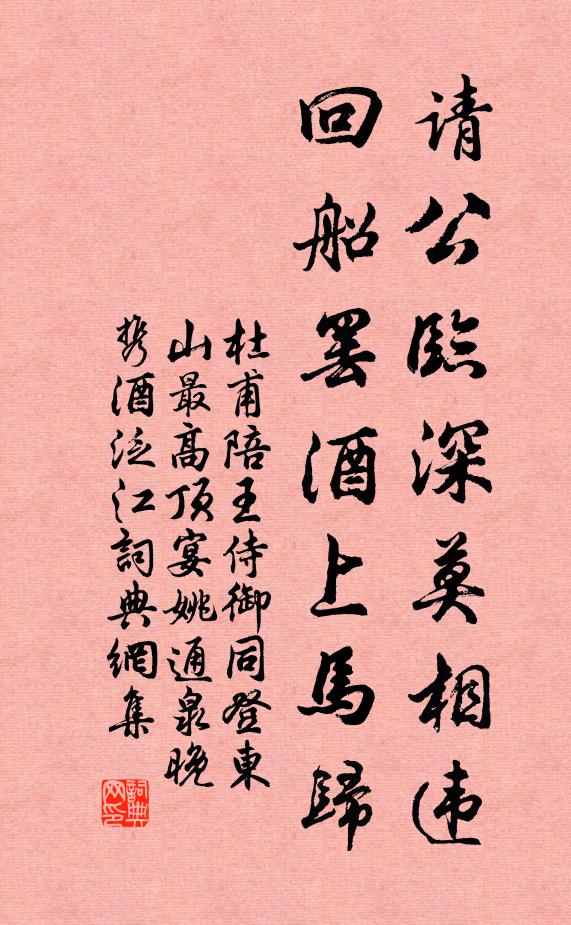 请公臨深莫相违
回船罢酒上馬歸
杜甫陪王侍御同登東
山最高顶宴姚通泉晚
携酒泛江詞典網集
詞典
网印